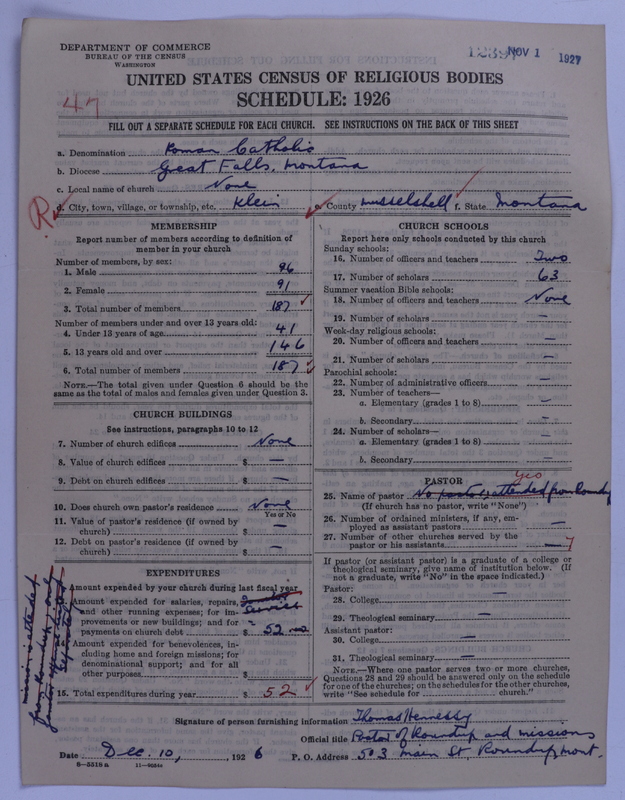 DEPARTMENT OF COMMERCE
BUREAU OF THE CENSUS
WASHINGTON
NOV 1 1927
UNITED STATES CENSUS OF RELIGIOUS BODIES
SCHEDULE: 1926
47
FILL OUT A SEPARATE SCHEDULE FOR EACH CHURCH. SEE INSTRUCTIONS ON THE BACK OF THIS SHEET
a. Denomination Roman Catholic
b. Diocese Great Falls, Montana
c. Local name of church None
R
d. City, town, village, or township, etc. Klein e. County Musselshell f. State Montana
MEMBERSHIP
Report number of members according to definition of member in your church
Number of members, by sex:
1. Male 96
2. Female 91
3. Total number of members 187
Number of members under and over 13 years old:
4. Under 13 years of age 41
5. 13 years old and over 146
6. Total number of members 187
NOTE.—The total given under Question 6 should be the
same as the total of males and females given under Question 3.
CHURCH BUILDINGS
See instructions, paragraphs 10 to 12
7. Number of church edifices None
8. Value of church edifices $ —
9. Debt on church edifices $ —
10. Does church own pastor's residence None
Yes or No
11. Value of pastor's residence (if owned by
church) $ —
12. Debt on pastor's residence (if owned by
church) $ —
EXPENDITURES
Amount expended by church during last fiscal year
Amount expended for salaries, repairs,
and other running expenses; for im-
provements or new buildings; and for
payments on church debt $ 52
Amount expended for benevolences, in-
cluding home and foreign missions; for
denominational support; and for all
other purposes $ —
15. Total expenditures during year $ 52
mission is attended
from Roundup
CHURCH SCHOOLS
Report here only schools conducted by this church
Sunday schools:
16. Number of officers and teachers Two
17. Number of scholars 63
Summer vacation Bible schools:
18. Number of officers and teachers None
19. Number of scholars —
Week-day religious schools:
20. Number of officers and teachers —
21. Number of scholars —
Parochial schools:
22. Number of administrative officers —
23. Number of teachers—
a. Elementary (grades 1 to 8) —
b. Secondary —
24. Number of scholars—
a. Elementary (grades 1 to 8) —
b. Secondary —
PASTOR
Yes
25. Name of pastor No pastor, attended from Roundup
(If church has no pastor, write "None")
26. Number of ordained ministers, if any, em-
ployed as assistant pastors —
27. Number of other churches served by the
pastor or his assistants — 7
If pastor (or assistant pastor) is a graduate of a college or
theological seminary, give name of institution below. (If
not a graduate, write "No" in the space indicated.)
Pastor:
28. College —
29. Theological seminary —
Assistant pastor:
30. College —
31. Theological seminary —
NOTE.—Where one pastor serves two or more churches,
Questions 28 and 29 should be answered only on the schedule
for one of the churches; on the schedules for the other churches,
write "See schedule for church."
Signature of person furnishing information Thomas Hennessy
Official title Pastor of Roundup and missions
Date Dec. 10, 1926 P. O. Address 503 Main St. Roundup, Mont.
8—5518 a